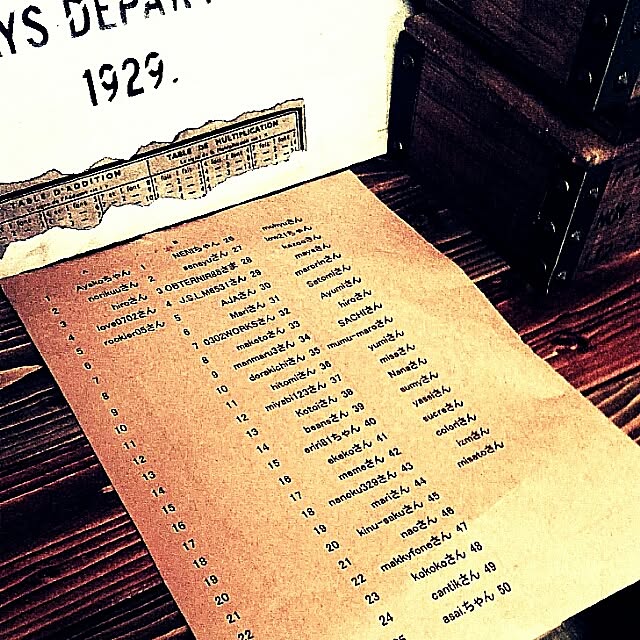 YS DEPAR
1929.
TABLE D'ADDITION
TABLE DE MULTIPLICATION
1 Ayakoちゃん 1 NENIちゃん 26 mumyuさん
2 norikuuさん 2 senayuさん 27
3 hiroさん 3 OBTERNIR88さま 28
4 love0702さん 4 J.S.L.M8531さん 29 mayaさん
5 rookier05さん 5 AJAさん 30 maronnさん
6 6 Mariさん 31 Satomiさん
7 7 0302WORKSさん 32 Ayumiさん
8 8 makotoさん 33 hiroさん
9 9 manmaru3さん 34 SACHIさん
10 10 dorakichiさん 35 munu-maroさん
11 11 hitomiさん 36 yumiさん
12 12 miyabi123さん 37 misaさん
13 13 Kotoiさん 38 Nanaさん
14 14 beansさん 39 sumyさん
15 15 eriri81ちゃん 40 yassiさん
16 16 akekoさん 41 sucreさん
17 17 mameさん 42 coloriさん
18 18 nanoku329さん 43 izmiさん
19 19 mariさん 44 misatoさん
20 20 kinu-sakuさん 45
21 21 naoさん 46
22 22 makkyfoneさん 47
23 kokokoさん 48
24 cantikさん 49
25 asai.ちゃん 50